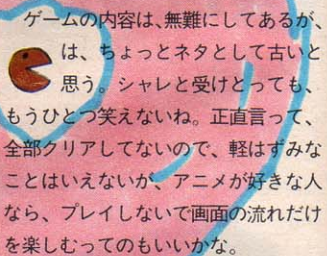 ゲームの内容は、無難にしてあるが、
は、ちょっとネタとして古いと
思う。シャレと受けとっても、
もうひとつ笑えないね。正直言って、
全部クリアしてないので、軽はずみな
ことはいえないが、アニメが好きな人
なら、プレイしないで画面の流れだけ
を楽しむってのもいいかな。